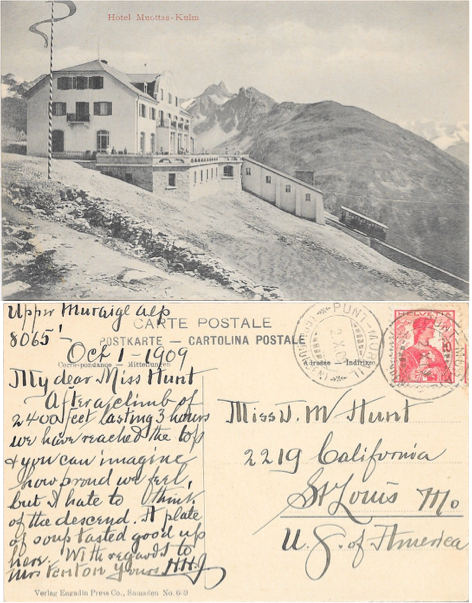 Hotel Muottas-Kulm
Upper Muraigl alp
8065'
CARTE POSTALE
POSTKARTE - CARTOLINA POSTALE
Oct 1 - 1909
Correspondance - Mitteilungen
Adresse - Indirizzo
PUNT-MURAIGL
HELVETIA
My dear Miss Hunt
After a climb of
2400 feet lasting 3 hours
we have reached the top
& you can imagine
how proud we feel,
but I hate to think
of the descend. A plate
of soup tasted good up
here. With regards to
Mrs Fenton Yours HHJ
Miss J. M Hunt
2219 California
St Louis Mo
U. S. of America
Verlag Engadin Press Co., Samaden No. 6-9